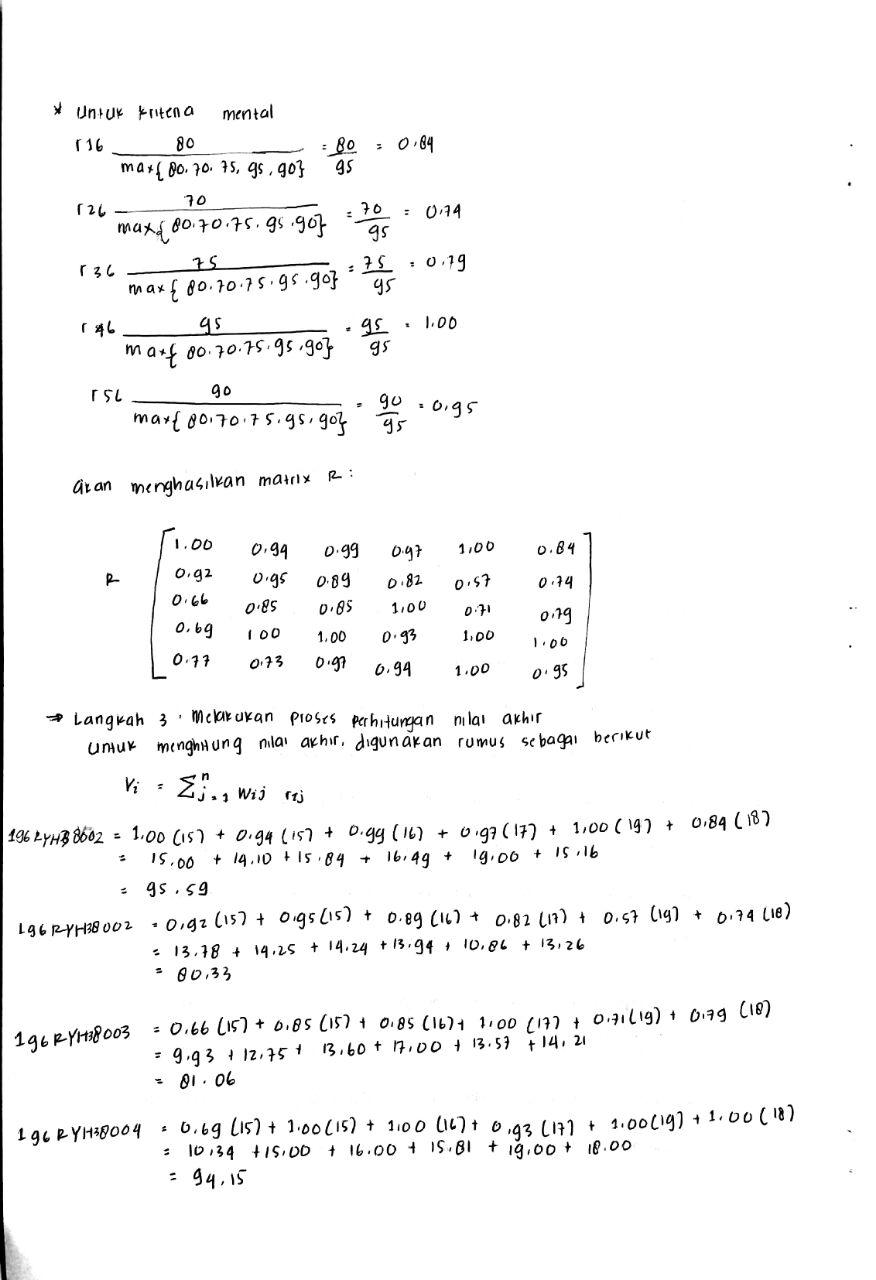 * Untuk kriteria mental
r16 80 / max{80, 70, 75, 95, 90} = 80/95 = 0.84
r26 70 / max{80.70.75.95.90} = 70/95 = 0.74
r36 75 / max{80.70.75.95.90} = 75/95 = 0.79
r46 95 / max{80.70.75.95.90} = 95/95 = 1.00
r56 90 / max{80.70.75.95.90} = 90/95 = 0.95
akan menghasilkan matrix R :
1.00 0.94 0.99 0.97 1.00 0.84
R 0.92 0.95 0.89 0.82 0.57 0.74
0.66 0.85 0.85 1.00 0.71 0.79
0.69 1 00 1.00 0.93 1.00 1.00
0.77 0.73 0.97 0.94 1.00 0.95
⇒ Langkah 3. Melakukan proses perhitungan nilai akhir
untuk menghitung nilai akhir, digunakan rumus sebagai berikut
Vi = Σⁿj=1 Wij rij
= 1.00 (15) + 0.94 (15) + 0.99 (16) + 0.97 (17) + 1.00 (19) + 0.84 (18)
= 15.00 + 14.10 + 15.84 + 16.49 + 19.00 + 15.16
= 95.59
196RYH38002 = 0.92 (15) + 0.95 (15) + 0.89 (16) + 0.82 (17) + 0.57 (19) + 0.74 (18)
= 13.78 + 14.25 + 14.24 + 13.94 + 10.86 + 13.26
= 80.33
196RYH38003 = 0.66 (15) + 0.85 (15) + 0.85 (16) + 1.00 (17) + 0.71 (19) + 0.79 (18)
= 9.93 + 12.75 + 13.60 + 17.00 + 13.57 + 14.21
= 81.06
196RYH38004 = 0.69 (15) + 1.00 (15) + 1.00 (16) + 0.93 (17) + 1.00 (19) + 1.00 (18)
= 10.34 + 15.00 + 16.00 + 15.81 + 19.00 + 18.00
= 94.15